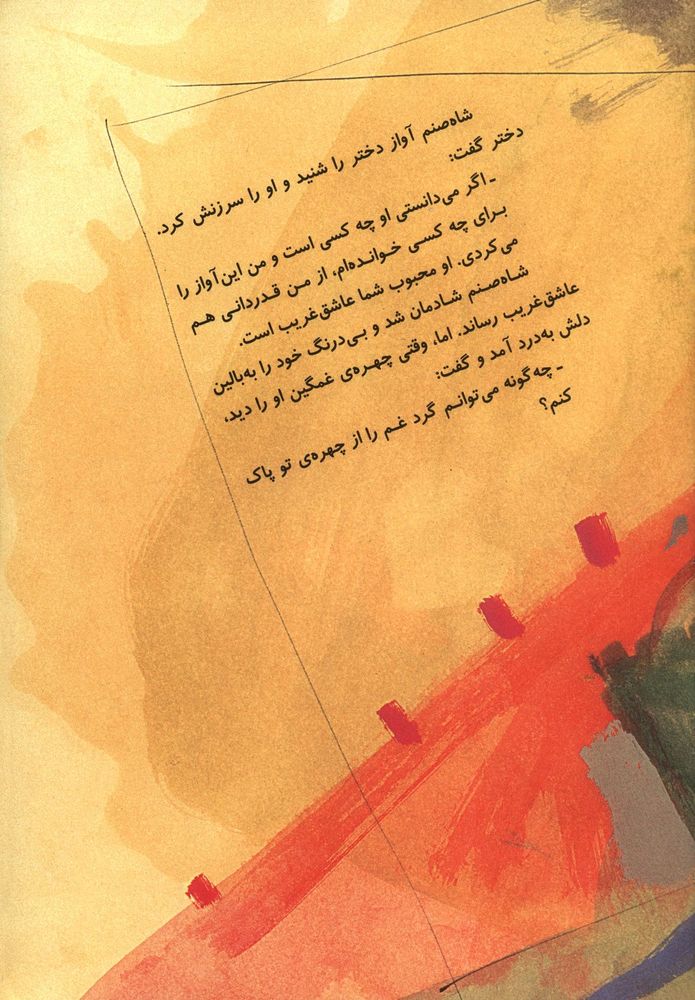 شاه‌صنم آواز دختر را شنید و او را سرزنش کرد.
دختر گفت:
ـ اگر می‌دانستی او چه کسی است و من این آواز را
برای چه کسی خوانده‌ام، از من قدردانی هم
می‌کردی. او محبوب شما عاشق‌غریب است.
شاه‌صنم شادمان شد و بی‌درنگ خود را به‌بالین
عاشق‌غریب رساند. اما، وقتی چهره‌ی غمگین او را دید،
دلش به‌درد آمد و گفت:
ـ چه‌گونه می‌توانم گرد غم را از چهره‌ی تو پاک
کنم؟